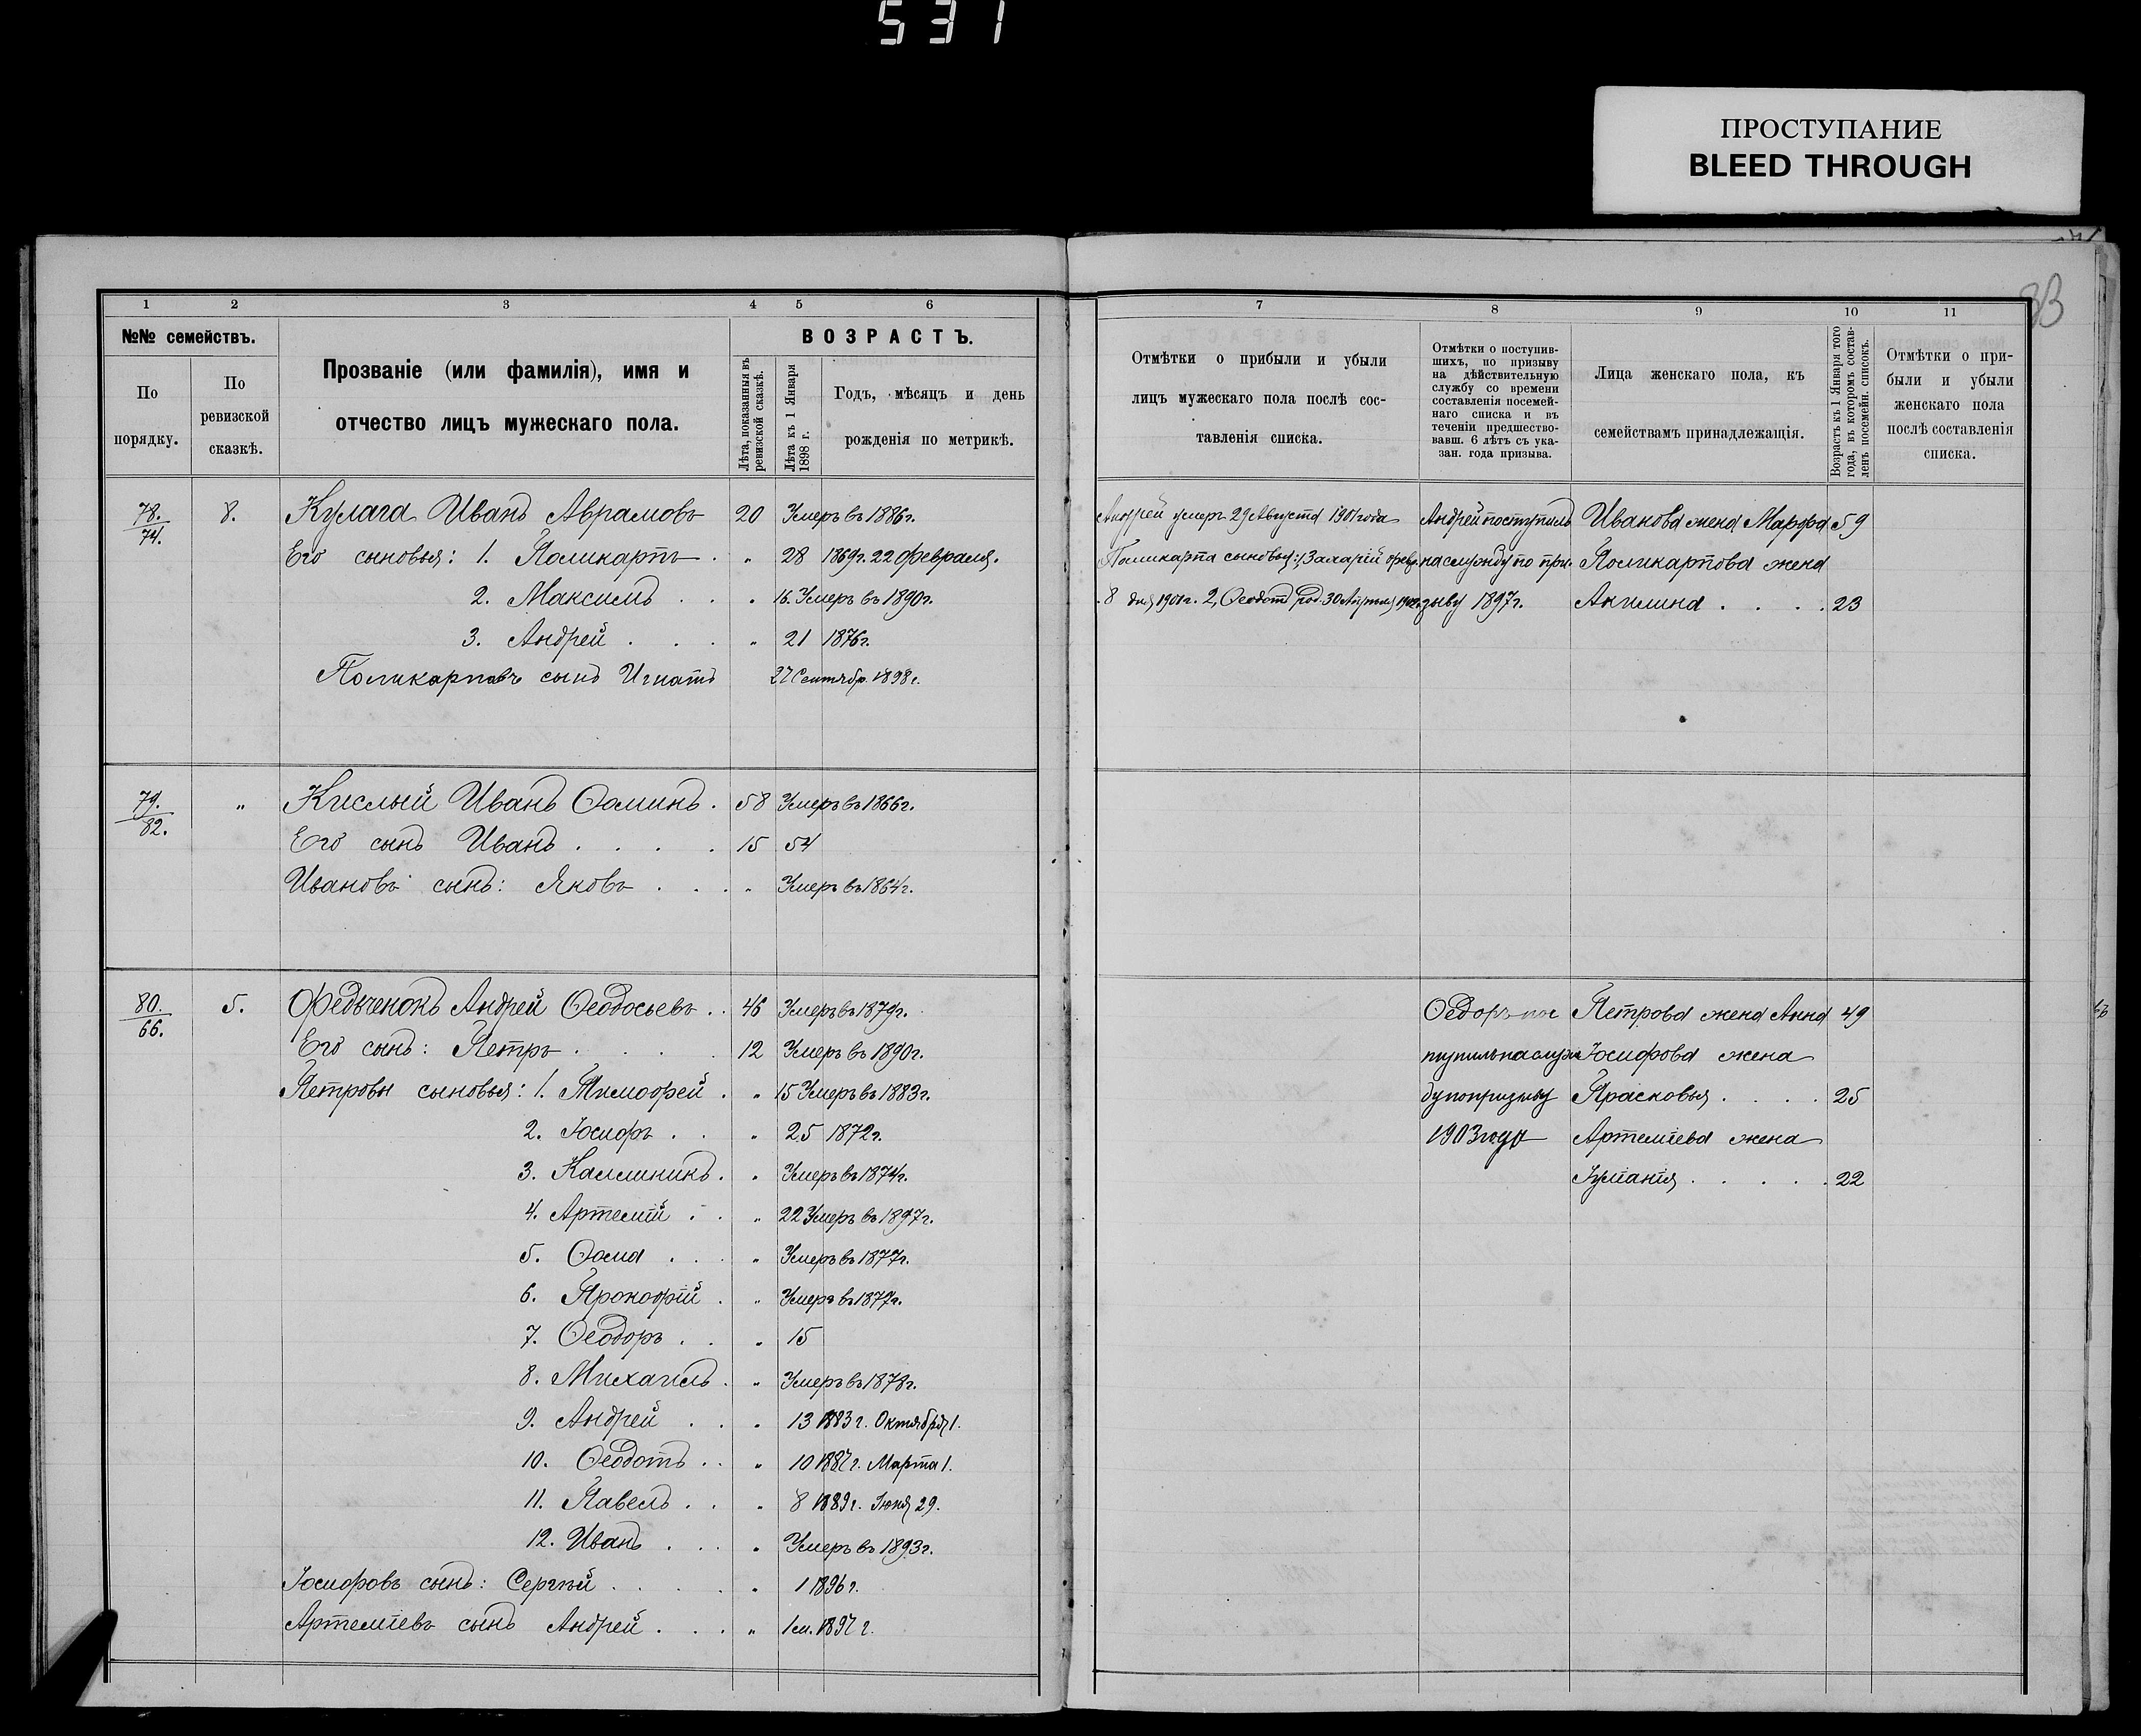 531
ПРОСТУПАНИЕ
BLEED THROUGH
33
1 2 3 4 5 6
№№ семействъ.
По порядку.
По ревизской сказкѣ.
Прозваніе (или фамилія), имя и
отчество лицъ мужескаго пола.
ВОЗРАСТЪ.
Лѣта, показанныя въ ревизской сказкѣ.
Лѣта къ 1 Января 1898 г.
Годъ, мѣсяцъ и день
рожденія по метрикѣ.
78. 74. 8. Кулага Иванъ Аврамовъ 20 Умеръ въ 1886г.
Его сыновья: 1. Поликарпъ . „ 28 1869г. 22 февраля.
2. Максимъ . . „ 16. Умеръ въ 1890г.
3. Андрей . . . „ 21 1876г.
Поликарповъ сынъ Игнатъ 27 Сентябр. 1898г.
79. 82. „ Кислый Иванъ Ѳоминъ . 58 Умеръ въ 1866г.
Его сынъ Иванъ . . . . 15 54
Ивановъ сынъ: Яковъ . . . „ Умеръ въ 1864г.
80. 66. 5. Федченокъ Андрей Ѳеодосьевъ . . 46 Умеръ въ 1879г.
Его сынъ: Петръ . . . . 12 Умеръ въ 1890г.
Петровы сыновья: 1. Тимофей . „ 15 Умеръ въ 1883г.
2. Іосифъ . . „ 25 1872г.
3. Каллиникъ . „ Умеръ въ 1874г.
4. Артемій . . „ 22 Умеръ въ 1897г.
5. Ѳома . . . „ Умеръ въ 1877г.
6. Прокофій . „ Умеръ въ 1877г.
7. Ѳеодоръ . . „ 15
8. Михаилъ . „ Умеръ въ 1878г.
9. Андрей . . „ 13 1883г. Октября 1.
10. Ѳеодотъ . . „ 10 1887г. Марта 1.
11. Павелъ . . „ 8 1889г. Іюня 29.
12. Иванъ . . . „ Умеръ въ 1893г.
Іосифовъ сынъ: Сергѣй . . . . „ 1 1896г.
Артеміевъ сынъ Андрей . . . „ 1м. 1897г.
7 8 9 10 11
Отмѣтки о прибыли и убыли
лицъ мужескаго пола послѣ сос-
тавленія списка.
Отмѣтки о поступив-
шихъ, по призыву
на дѣйствительную
службу со времени
составленія посемей-
наго списка и въ
теченіи предшество-
вавш. 6 лѣтъ съ ука-
зан. года призыва.
Лица женскаго пола, къ
семействамъ принадлежащія.
Возрастъ къ 1 Января того
года, въ которомъ состав-
ленъ посемейн. списокъ.
Отмѣтки о при-
были и убыли
женскаго пола
послѣ составленія
списка.
Андрей умеръ 29 Августа 1901 года Андрей поступилъ Иванова жена Марфа 59
Поликарпа сыновья: 1, Захарій февр. на службу по при- Поликарпова жена
8 дня 1901г. 2, Ѳеодотъ род. 30 Апрѣля 1902г. зыву 1897г. Акилина . . . . 23
Ѳедоръ пос Петрова жена Анна 49
тупилъ на служ Іосифова жена
бу по призыву Прасковья . . . . 25
1903 года Артеміева жена
Іуліанія . . . . . 22